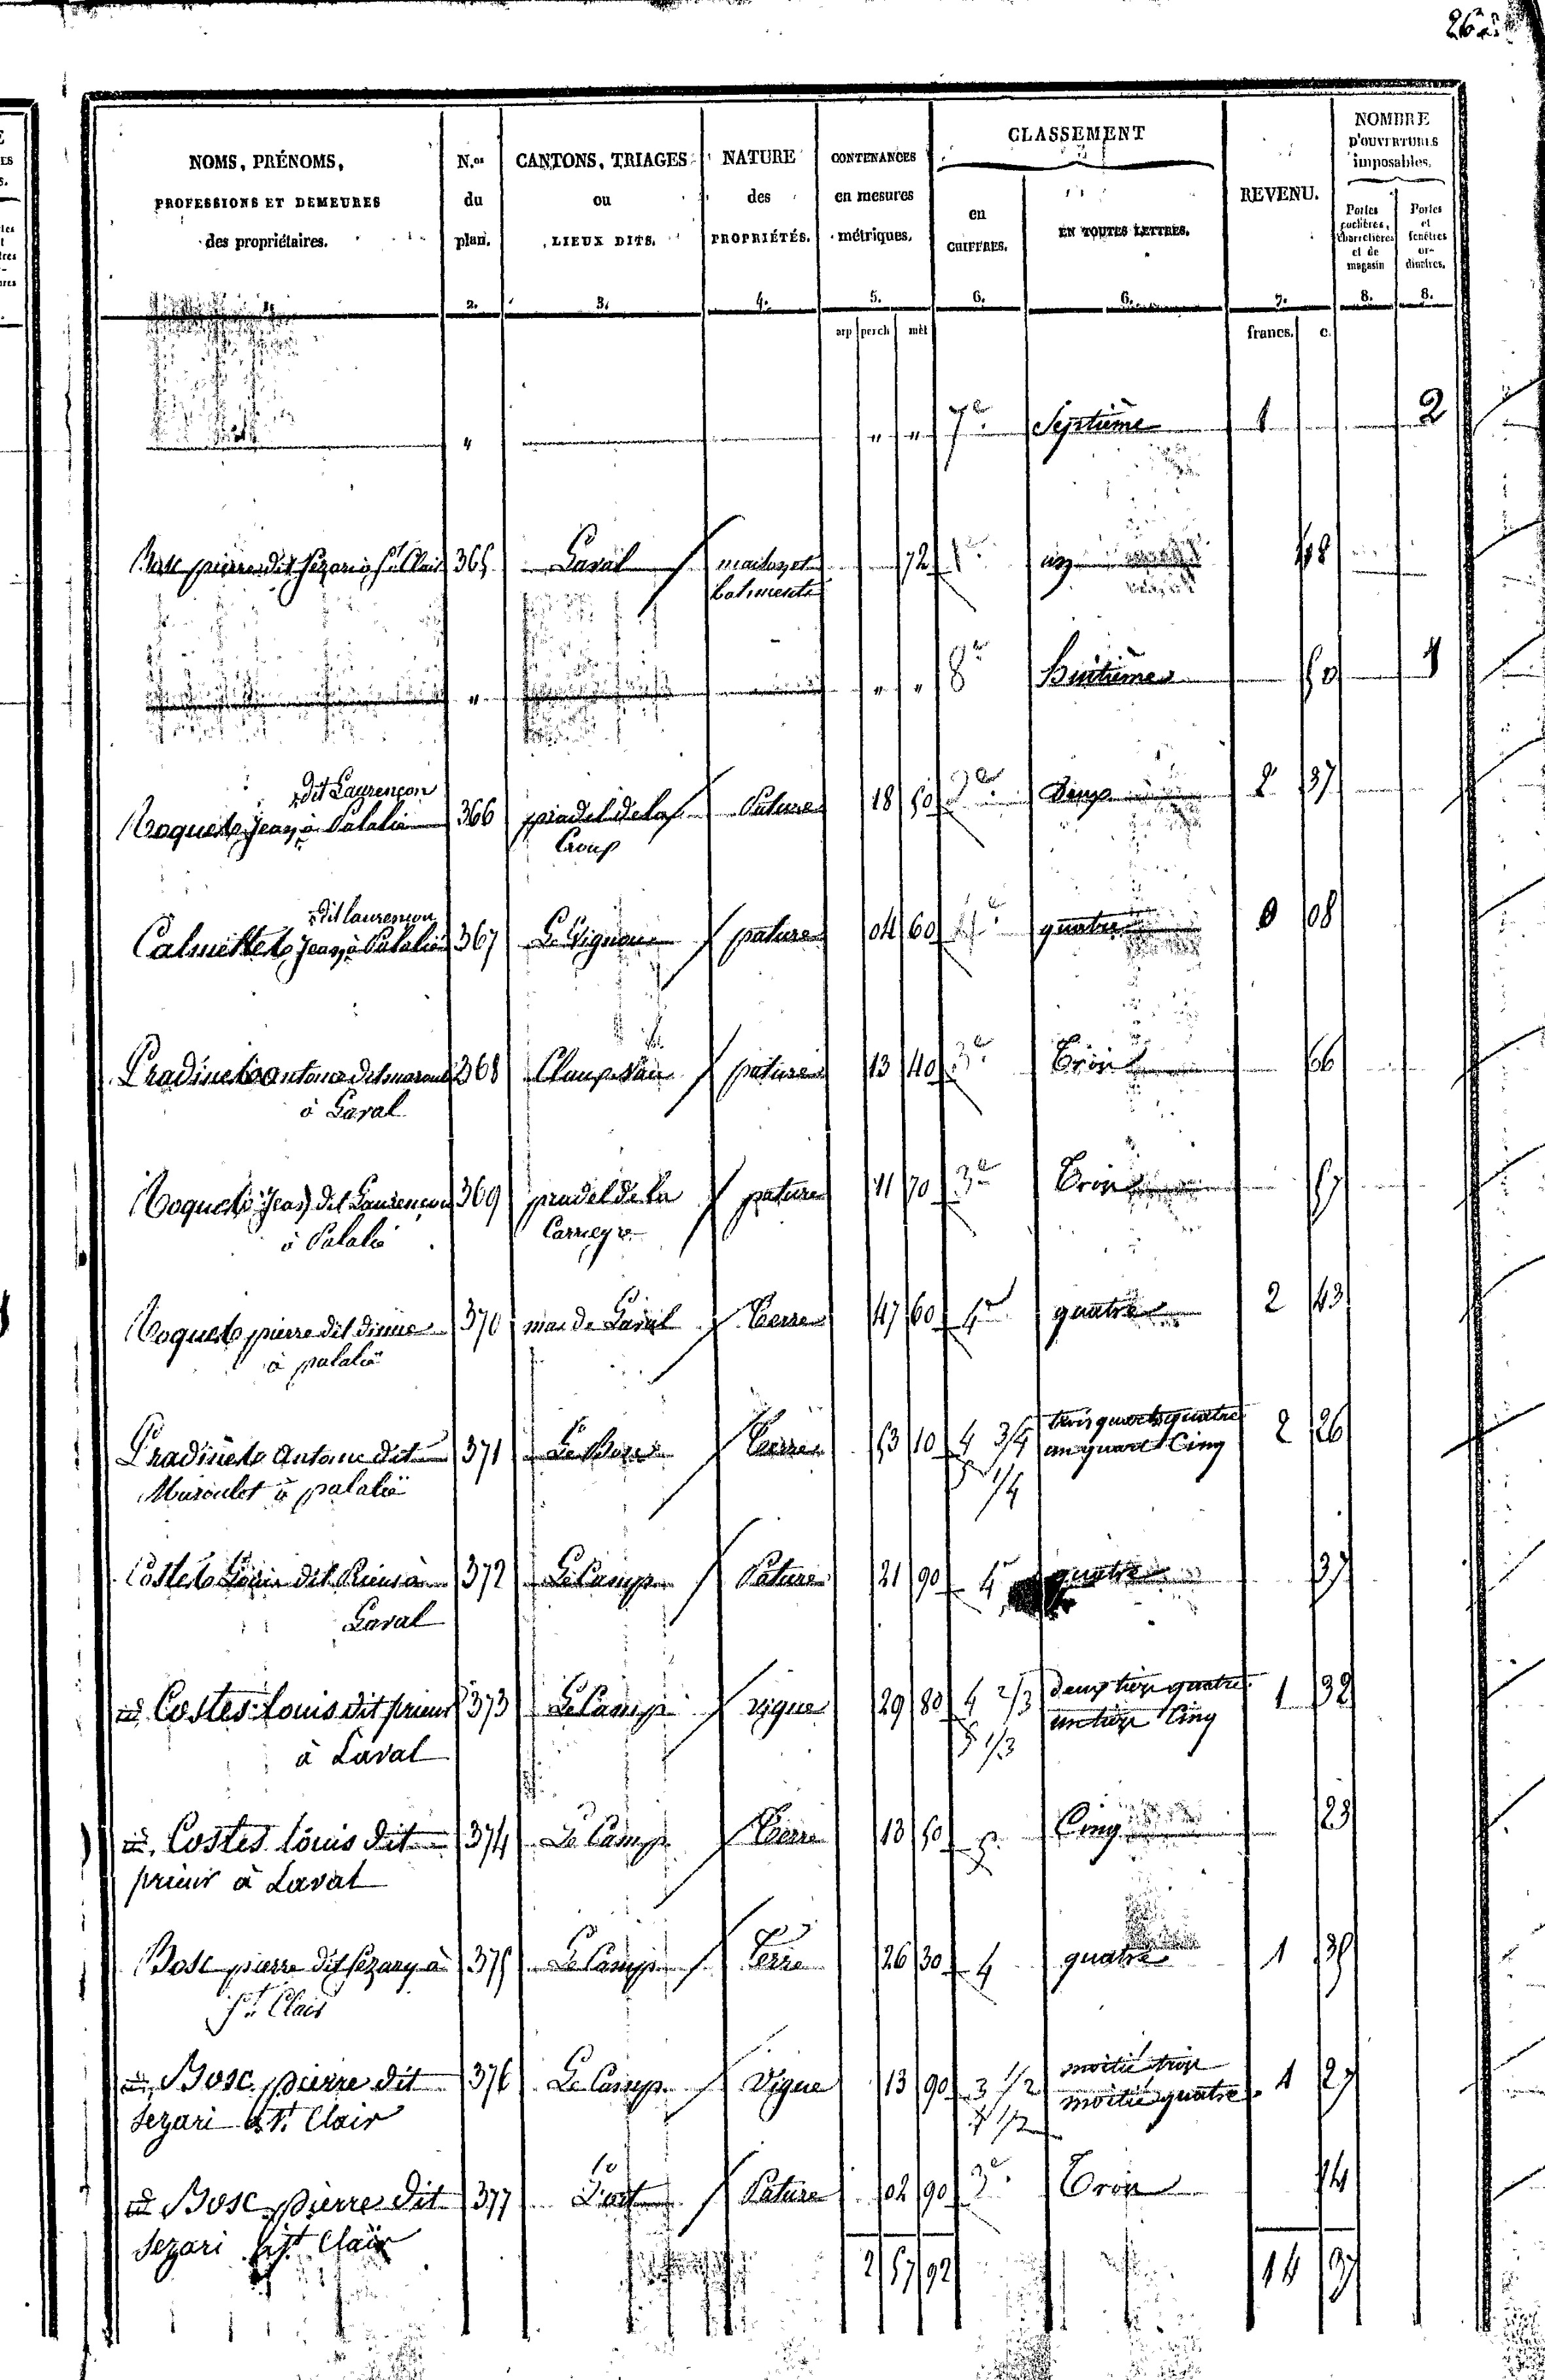 262.
NOMS, PRÉNOMS, PROFESSIONS ET DEMEURES des propriétaires.
N.os du plan.
CANTONS, TRIAGES ou LIEUX DITS.
NATURE des PROPRIÉTÉS.
CONTENANCES en mesures métriques.
CLASSEMENT
en CHIFFRES.
EN TOUTES LETTRES.
REVENU.
NOMBRE D'OUVERTURES imposables.
Portes cochères, charretières et de magasin
Portes et fenêtres ordinaires.
2. 3. 4. 5. 6. 6. 7. 8. 8.
arp perch mèt francs. c.
" " " 7e Septième 1 2
Bosc pierre dit Sezari à St Clair 365 Laval maison et 72 1e un 48
batiments
" " " 8e huitième 50 1
dit Laurençon
Roquete Jean à Palalié 366 pradel de la Pature 18 50 2e Deux 2 37
Croup
dit laurençon
Calmette Jean à Palalié 367 Le Vignou pature 04 60 4e quatre 0 08
Pradines antoine dit 368 pature 13 40 3e Trois 66
à Laval
Roquete Jean dit Laurençon 369 pradel de la pature 11 70 3e Trois 57
à Palalié Carrieyre
Roquete pierre dit 370 mas de Laval Terre 47 60 4e quatre 2 43
à palalié
Pradines Antoine dit 371 Le Bosc Terre 53 10 4 3/4 trois quarts quatre 2 26
Maroulet à palalié 5 1/4 un quart Cinq
Costes Louis dit Prieur à 372 Le Camp Pature 21 90 4e quatre 37
Laval
id. Costes louis dit prieur 373 Le Camp vigne 29 80 4 2/3 deux tiers quatre 1 32
à Laval 5 1/3 un tiers Cinq
id. Costes louis dit 374 Le Camp Terre 13 50 5. Cinq 23
prieur à Laval
Bosc pierre dit Sezary à 375 Le Camp Terre 26 30 4 quatre 1 35
St Clair
id. Bosc pierre dit 376 Le Camp Vigne 13 90 3 1/2 moitié trois 1 27
sezari à St. Clair 4 1/2 moitié quatre
id Bosc pierre dit 377 L'ort Pature 02 90 3e Trois 14
sezari à St Clair
2 57 92 14 37